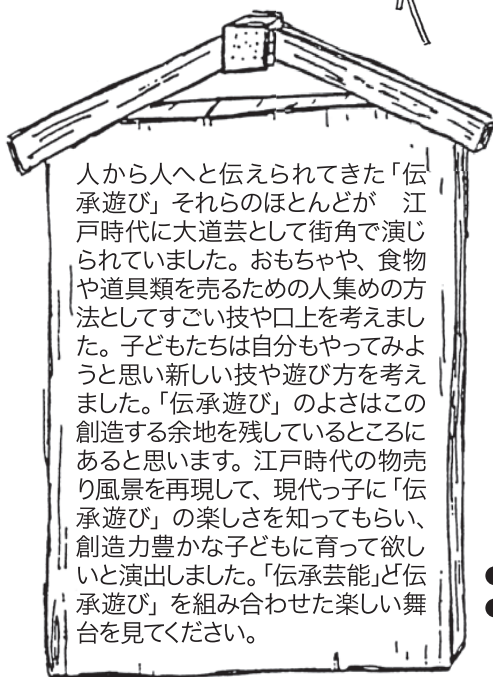 人から人へと伝えられてきた「伝
承遊び」それらのほとんどが　江
戸時代に大道芸として街角で演じ
られていました。おもちゃや、食物
や道具類を売るための人集めの方
法としてすごい技や口上を考えまし
た。子どもたちは自分もやってみよ
うと思い新しい技や遊び方を考え
ました。「伝承遊び」のよさはこの
創造する余地を残しているところに
あると思います。江戸時代の物売
り風景を再現して、現代っ子に「伝
承遊び」の楽しさを知ってもらい、
創造力豊かな子どもに育って欲し
いと演出しました。「伝承芸能」と「伝
承遊び」を組み合わせた楽しい舞
台を見てください。